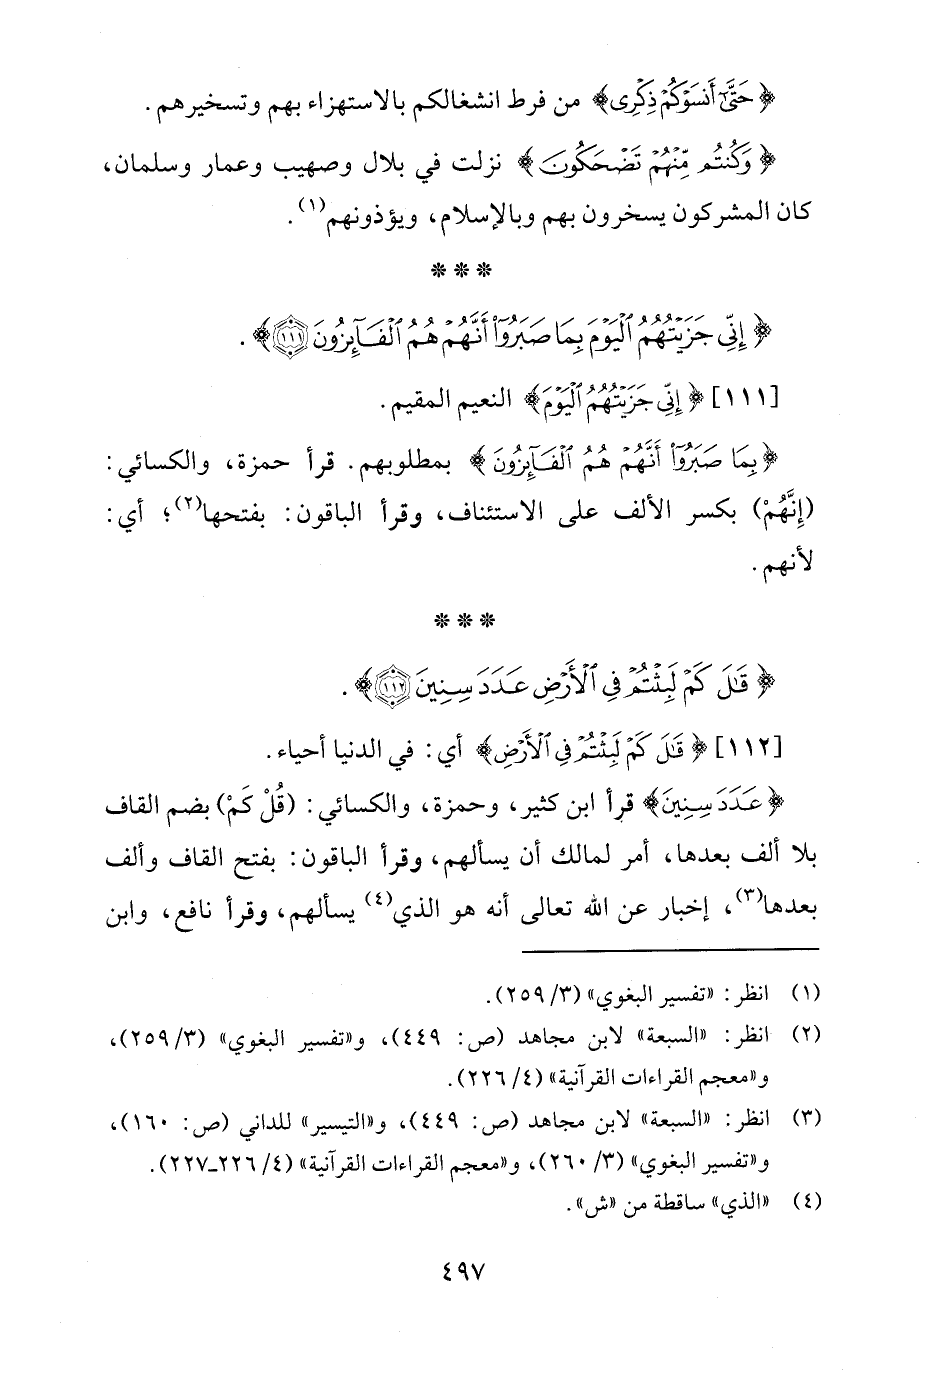 ﴿حَتَّىٰٓ أَنسَوۡكُمۡ ذِكۡرِي﴾ من فرط انشغالكم بالاستهزاء بهم وتسخيرهم.
﴿وَكُنتُم مِّنۡهُمۡ تَضۡحَكُونَ﴾ نزلت في بلال وصهيب وعمار وسلمان،
كان المشركون يسخرون بهم وبالإسلام، ويؤذونهم(١).
* * *
﴿إِنِّي جَزَيۡتُهُمُ ٱلۡيَوۡمَ بِمَا صَبَرُوٓاْ أَنَّهُمۡ هُمُ ٱلۡفَآئِزُونَ ١١١﴾.
[١١١] ﴿إِنِّي جَزَيۡتُهُمُ ٱلۡيَوۡمَ﴾ النعيم المقيم.
﴿بِمَا صَبَرُوٓاْ أَنَّهُمۡ هُمُ ٱلۡفَآئِزُونَ﴾ بمطلوبهم. قرأ حمزة، والكسائي:
(إِنَّهُمْ) بكسر الألف على الاستئناف، وقرأ الباقون: بفتحها(٢)؛ أي:
لأنهم.
* * *
﴿قَٰلَ كَمۡ لَبِثۡتُمۡ فِي ٱلۡأَرۡضِ عَدَدَ سِنِينَ ١١٢﴾.
[١١٢] ﴿قَٰلَ كَمۡ لَبِثۡتُمۡ فِي ٱلۡأَرۡضِ﴾ أي: في الدنيا أحياء.
﴿عَدَدَ سِنِينَ﴾ قرأ ابن كثير، وحمزة، والكسائي: (قُلْ كَمْ) بضم القاف
بلا ألف بعدها، أمر لمالك أن يسألهم، وقرأ الباقون: بفتح القاف وألف
بعدها(٣)، إخبار عن الله تعالى أنه هو الذي(٤) يسألهم، وقرأ نافع، وابن
(١) انظر: «تفسير البغوي» (٣/ ٢٥٩).
(٢) انظر: «السبعة» لابن مجاهد (ص: ٤٤٩)، و«تفسير البغوي» (٣/ ٢٥٩)،
و«معجم القراءات القرآنية» (٤/ ٢٢٦).
(٣) انظر: «السبعة» لابن مجاهد (ص: ٤٤٩)، و«التيسير» للداني (ص: ١٦٠)،
و«تفسير البغوي» (٣/ ٢٦٠)، و«معجم القراءات القرآنية» (٤/ ٢٢٦_٢٢٧).
(٤) «الذي» ساقطة من «ش».
٤٩٧